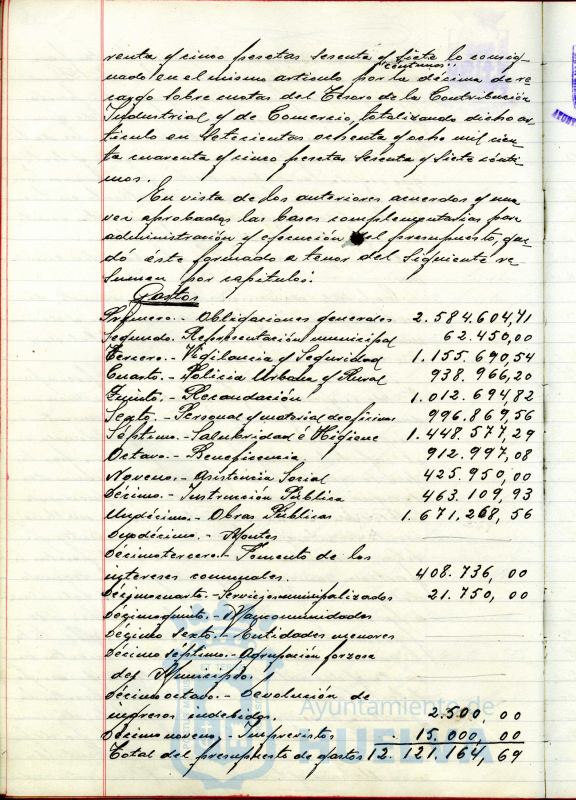 renta y cinco pesetas sesenta y siete lo consig-
céntimos
nado en el mismo artículo por la décima de re
cargo sobre cuotas del Tesoro de la Contribución
Industrial y de Comercio, totalizando dicho ar-
tículo en Setecientas ochenta y ocho mil cien-
ta cuarenta y cinco pesetas sesenta y siete cénti-
mos.
En vista de los anteriores acuerdos y una
vez aprobadas las bases complementarias para
administración y ejecución del presupuesto, que-
dó éste formado a tenor del siguiente re
sumen por capítulos:
Gastos
Primero.- Obligaciones generales 2.584.604,71
Segundo. Representación municipal 62.450,00
Tercero.- Vigilancia y Seguridad 1.155.690,54
Cuarto.- Policía Urbana y Rural 938.966,20
Quinto.- Recaudación 1.012.694,82
Sexto.- Personal y material de oficinas 996.869,56
Séptimo.- Salubridad é Higiene 1.448.577,29
Octavo.- Beneficencia 912.997,08
Noveno.- Asistencia Social 425.950,00
Décimo.- Instrucción Pública 463.109,93
Undécimo.- Obras Públicas 1.671.268,56
Duodécimo.- Montes
Décimotercero.- Fomento de los
intereses comunales. 408.736,00
Décimocuarto.- Servicios municipalizados 21.750,00
Décimoquinto.- Mancomunidades
Décimo Sexto.- Entidades menores
Décimo séptimo.- Agrupación forzosa
del Municipio.
Décimo octavo.- Devolución de
ingresos indebidos. 2.500,00
Décimo noveno.- Imprevistos 15.000,00
Total del presupuesto de gastos 12.121.164,69
Ayuntamiento de
HUELVA